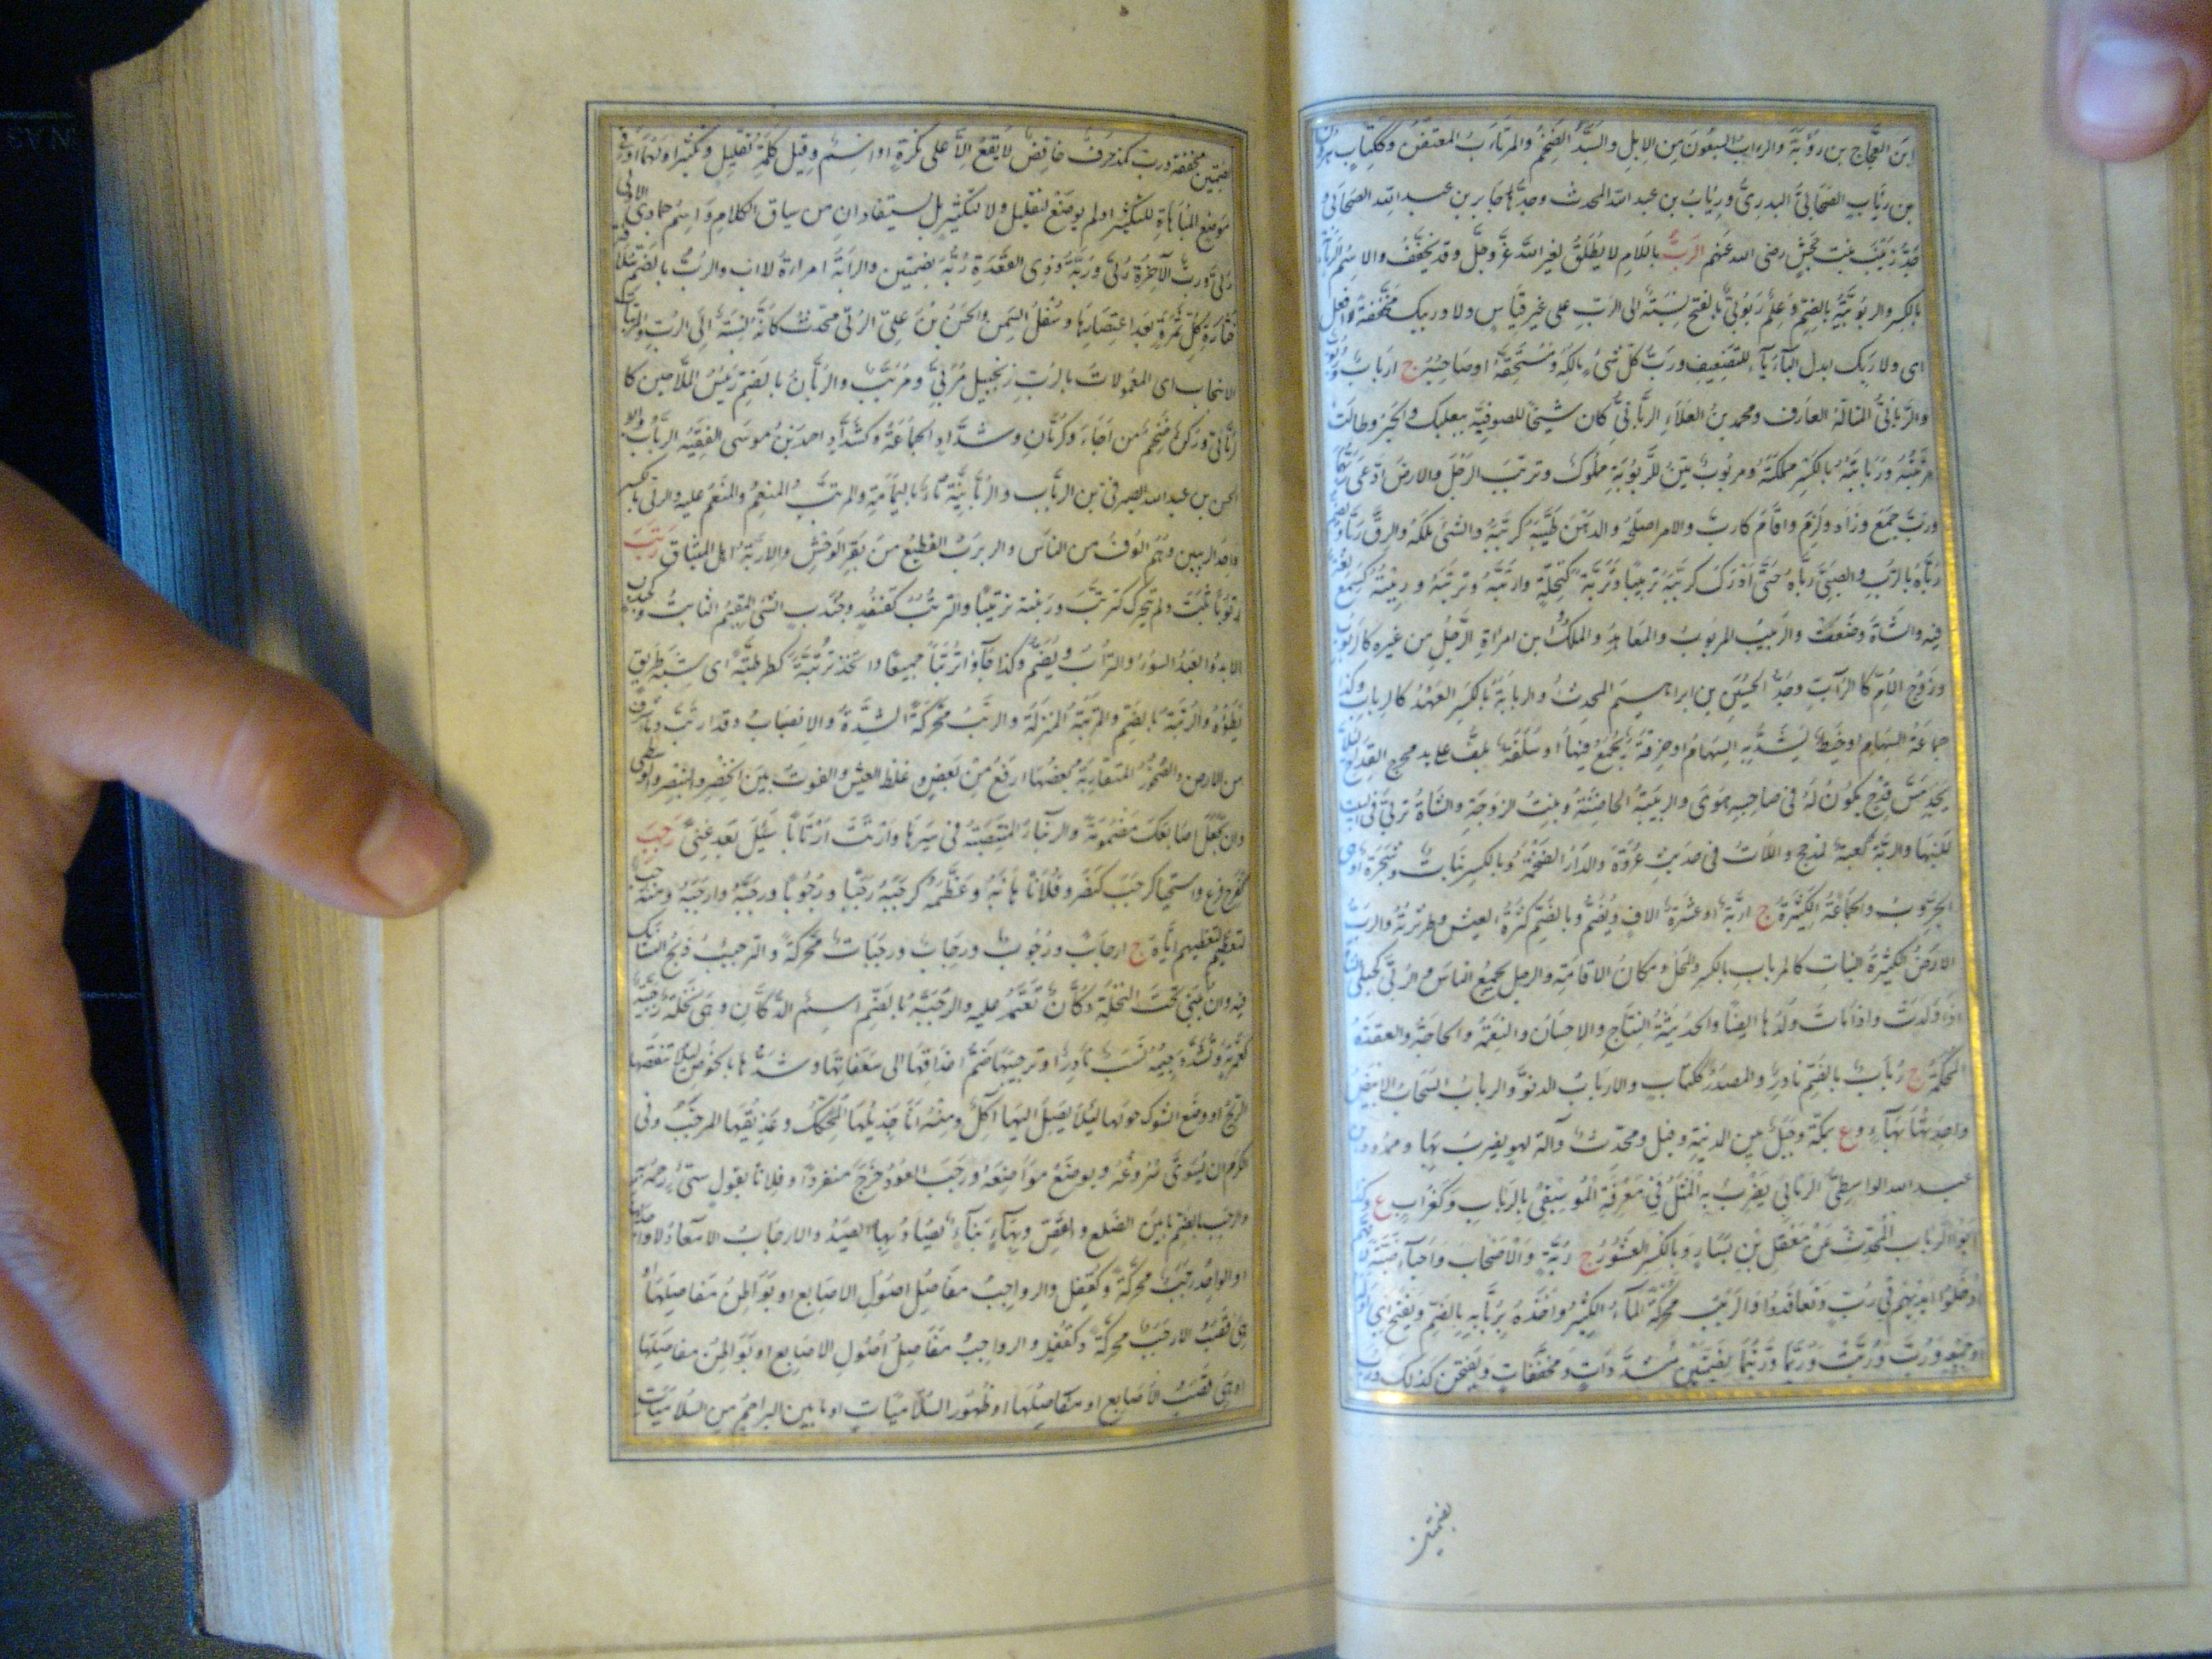 ابن العجاج بن رؤبة والرءاب السبعون من الابل والسيد الضخم والمرتأب المعتفن وككتاب هرون
بن رئاب الصحابى البدرى ورئاب بن عبد الله المحدث وجد جابر بن عبد الله الصحابى و
جد زينب بنت جحش رضى الله عنهم الرب باللام لا يطلق لغير الله عز وجل وقد يخفف والاسم الربابة
بالكسر والربوبية بالضم وعلم ربوبى بالفتح نسبة الى الرب على غير قياس ولا وربيك مخففة لا افعل
اى ولا ربك ابدل الباء ياء للتضعيف ورب كل شىء مالكه ومستحقه او صاحبه ج ارباب وربوب
والربانى المتاله العارف ومحمد بن العلاء الربانى كان شيخا للصوفية ببعلبك والحبر وطالت
مربته وربابته بالكسر مملكته ومربوب بين الربوبية مملوك وتربب الرجل والارض ادعى انه ربها
ورب جمع وزاد ولزم واقام كارب والامر اصلحه والدهن طيبه كرببه والشىء ملكه والزق ربا ويضم
رباه بالرب والصبى رباه حتى ادرك كرببه تربيبا وتربة كتحلة وارتبه وترببه وربيته كسمع لغة
فيه والشاة وضعت والربيب المربوب والمعاهد والملك وابن امراة الرجل من غيره كالربوب
وزوج الام كالراب وجد الحسين بن ابراهيم المحدث والربابة بالكسر العهد كالرباب وكذا
جماعة السهام او خيط تشد به السهام او خرقة تجمع فيها او سلفة تلف على يد مخرج القداح لئلا
يجد مس قدح يكون له فى صاحبه هوى والربيبة الحاضنة وبنت الزوجة والشاة تربى فى البيت
للبنها والربة كعبة لمذحج واللات فى حديث عروة والدار الضخمة وبالكسر نبات وشجرة او هى
الخروب والجماعة الكثيرة ج اربة او عشرة الاف ويضم وبالضم كثرة العيش وطثرته والمرب
الارض الكثيرة النبات كالمرباب بالكسر والمحل ومكان الاقامة والرجل يجمع الناس والربى كحبلى الشاة
اذا ولدت واذا مات ولدها ايضا والحديثة النتاج والاحسان والنعمة والحاجة والعقدة
المحكمة ج رباب بالضم نادر والمصدر ككتاب والارباب الدنو والرباب السحاب الابيض
واحدته بهاء و ع بمكة وجبل بين المدينة وفيد ومحدث وآلة لهو يضرب بها وممدود بن
عبد الله الواسطى الربابى يضرب به المثل فى معرفة الموسيقى بالرباب وكغراب ع وكذا
ابو الرباب المحدث عن معقل بن يسار وبالكسر العشور ج ربة والاصحاب واحياء ضبة لانهم
ادخلوا ايديهم فى رب وتعاقدوا والربب محركة الماء الكثير واخذه بربانه بالضم ويفتح اى اوله
او جميعه ورب وربت وربما وربتما بضمتين مشددات ومخففات وبفتحهن كذلك ورب
بضمتين
بضمتين مخففة ورب كمذ حرف خافض لا يقع الا على نكرة او اسم وقيل كلمة تقليل وتكثير او لهما او فى
موضع المباهاة للتكثير او لم يوضع لتقليل ولا لتكثير بل يستفادان من سياق الكلام واسم جمادى الاولى
ربى ورب الآخرة ربى وربة وذى القعدة ربة بضمتين والرابة امراة الاب والرب بالضم سلافة
خثارة كل ثمرة بعد اعتصارها وثفل السمن والحسن بن على الربى محدث كانه نسبة الى الرب والمرببات
الانبجات اى المعمولات بالرب زنجبيل مربى ومربب والربان بالضم رئيس الملاحين كا
ربانى وركن ضخم من اجاء وكرمان وشداد الجماعة وكشداد احمد بن موسى الفقيه الرباب وابو
الحسن بن عبد الله الصيرفى بن الرباب والربابية ماء باليمامة والمرتب المنعم والمنعم عليه والربى بالكسر
واحد الربيين وهم الوف من الناس والربرب القطيع من بقر الوحش والاربة اهل الميثاق رتب
رتوبا ثبت ولم يتحرك كترتب ورتبته ترتيبا والترتب كقنفذ وجندب الشىء المقيم الثابت وكجندب
الابد والعبد السوء والتراب ويضم وكذا جاؤا ترتبا جميعا واتخذ ترتبة كطرطبة اى شبه طريق
يطؤه والرتبة بالضم والمرتبة المنزلة والرتب محركة الشدة والانصباب وقد ارتب وما اشرف
من الارض والصخور المتقاربة بعضها ارفع من بعض وغلظ العيش والفوت بين الخنصر والبنصر والوسطى
وان تجعل اصابعك مضمومة والرتباء المنتصبة فى سيرها وارتب ارتابا سئل بعد غنى رجب
كفرح فزع واستحيا كرجب كنصر وفلانا هابه وعظمه كرجبه رجبا ورجوبا ورجبه وارجبه ومنه رجب
لتعظيمهم اياه ج ارجاب ورجوب ورجاب ورجبات محركة والترجيب ذبح النسائك
فيه وان يبنى تحت النخلة دكان تعتمد عليه والرجبة بالضم اسم الدكان وهى نخلة رجبية
كعمرية وتشدد جيمه نسب نادر او ترجيبها ضم اعذاقها الى سعفاتها وشدها بالخوص لئلا تنفضها
الريح او وضع الشوك حولها لئلا يصل اليها آكل ومنه انا جذيلها المحكك وعذيقها المرجب وفى
الكرم ان يسوى سروغه ويوضع مواضعه ورجب العود خرج منفردا وفلانا بقول سىء رجمه به
والرجب بالضم ما بين الضلع والقص وبهاء بناء تصاد بها الصيد والارجاب الامعاء لا واحد لها
او الواحد رجب محركة وكقفل والرواجب مفاصل اصول الاصابع او بواطن مفاصلها او
هى قصب الارجب محركة وكقفل والرواجب مفاصل اصول الاصابع او بواطن مفاصلها
او هى قصب الاصابع او مفاصلها او ظهور السلاميات او ما بين البراجم من السلاميات